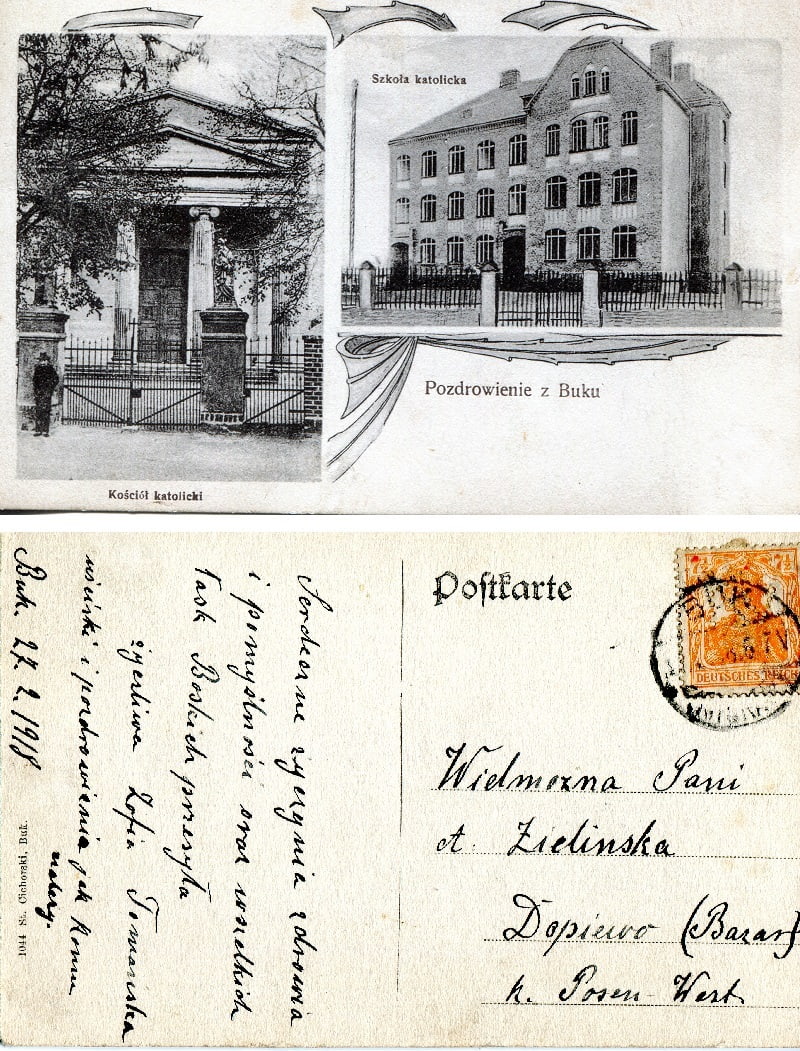 Szkoła katolicka
Pozdrowienie z Buku
Kościół katolicki
Postkarte
7½ 7½
DEUTSCHES REICH
BUK
Wielmożna Pani
A. Zielinska
Dopiewo (Bazar)
k. Posen-West
Serdeczne życzynia zdrowia
i pomyślności oraz wszelkich
łask Boskich przesyła
życzliwa Zofia Tomańska
uściski i pozdrowienia jak komu
należy.
Buk. 27. 2. 1918
1044 St. Cichorski, Buk.